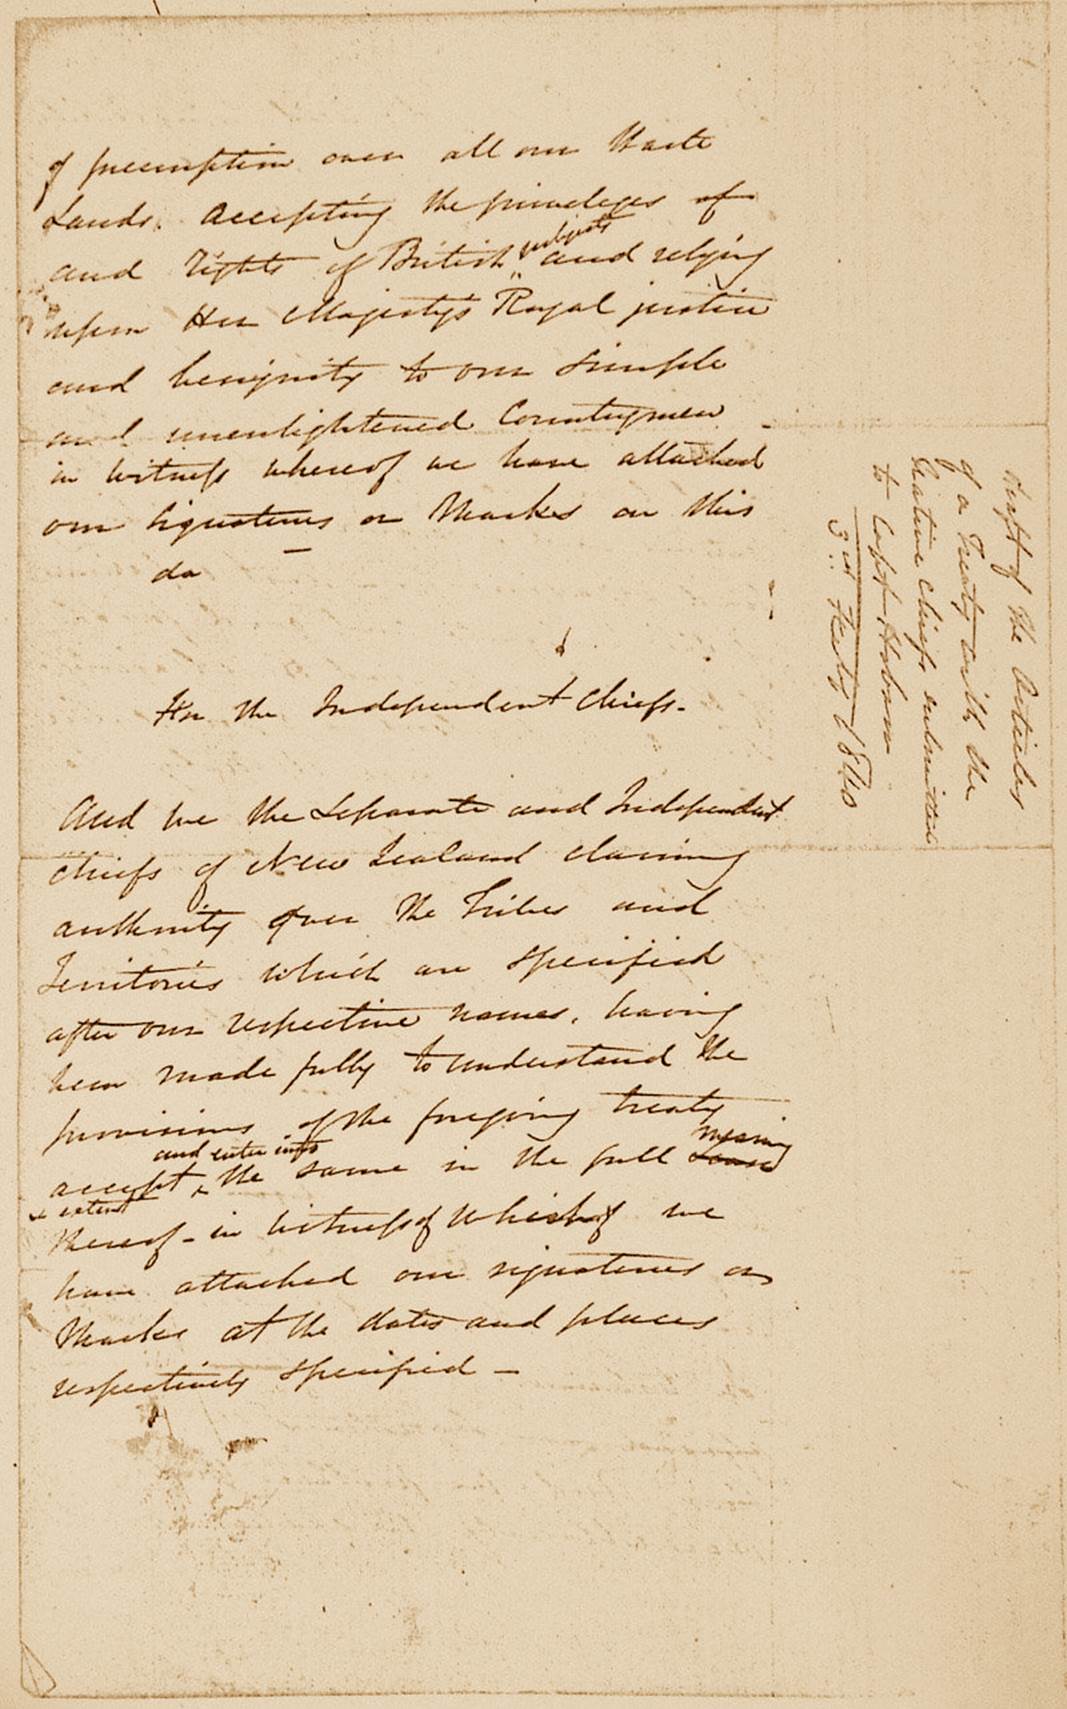 of preemption over all our Waste
Lands. Accepting the priveleges of
and Rights of British subjects and relying
upon Her Majesty's Royal justice
and benignity to our simple
and unenlightened Countrymen
in witness whereof we have attached
our signatures or Marks on this
da
For the Independent Chiefs.
And we the Separate and Independent
Chiefs of New Zealand claiming
authority over the Tribes and
Territories which are specified
after our respective names, having
been made fully to understand the
provisions of the foregoing treaty
accept and enter into the same in the full sense meaning
& extent
thereof - in witness of which we
have attached our signatures or
Marks at the dates and places
respectively specified -
Draft of the Articles
of a Treaty with the
Native Chiefs submitted
to Capt Hobson
3rd Feby 1840